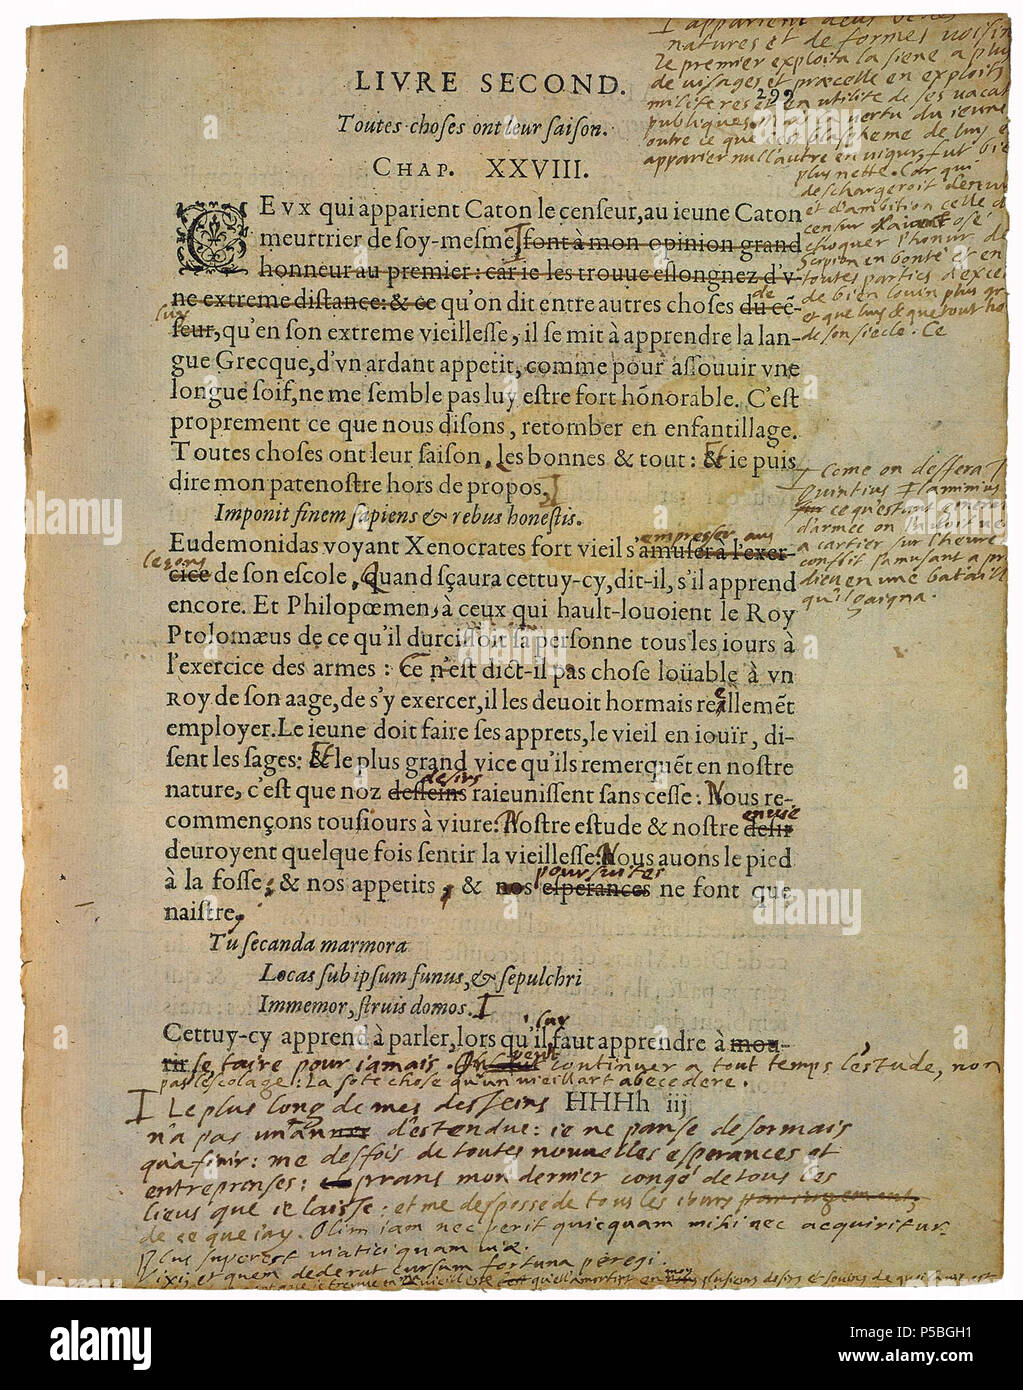 LIVRE SECOND.
299
Toutes choses ont leur saison.
CHAP. XXVIII.
CEVX qui apparient Caton le censeur, au ieune Caton
meurtrier de soy-mesme, font à mon opinion grand
honneur au premier: car ie les trouue eslongnez d'v-
ne extreme distance: & ce qu'on dit entre autres choses du cē-
de
luy
seur, qu'en son extreme vieillesse, il se mit à apprendre la lan-
gue Grecque, d'vn ardant appetit, comme pour assouuir vne
longue soif, ne me semble pas luy estre fort hōnorable. C'est
proprement ce que nous disons, retomber en enfantillage.
Toutes choses ont leur saison, les bonnes & tout: & ie puis
Et
dire mon patenostre hors de propos.
Imponit finem sapiens & rebus honestis.
Eudemonidas voyant Xenocrates fort vieil s'amuser à l'exer-
empresser aus
leçons
cice de son escole, Quand sçaura cettuy-cy, dit-il, s'il apprend
encore. Et Philopœmen, à ceux qui hault-louoient le Roy
Ptolomæus de ce qu'il durcissoit sa personne tous les iours à
l'exercice des armes: Ce n'est dict-il pas chose loüable à vn
Roy de son aage, de s'y exercer, il les deuoit hormais reellemēt
employer. Le ieune doit faire ses apprets, le vieil en iouïr, di-
sent les sages: & le plus grand vice qu'ils remerquēt en nostre
Et
desirs
nature, c'est que noz desseins raieunissent sans cesse: Nous re-
commençons tousiours à viure: Nostre estude & nostre desir
envie
deuroyent quelque fois sentir la vieillesse: Nous auons le pied
poursuites
à la fosse, & nos appetits, & nos esperances ne font que
naistre,
Tu secanda marmora
Locas sub ipsum funus, & sepulchri
Immemor, struis domos.
Cettuy-cy apprend à parler, lors qu'il faut apprendre à mou-
luy
rir se taire pour iamais. continuer a tout temps l'estude, non
pas l'escolage: La sote chose qu'un vieillart abecedere.
HHHh iij
Le plus long de mes desseins
n'a pas un an d'estendue: ie ne panse desormais
qu'a finir: me desfois de toutes nouvelles esperances et
entreprinses: prans mon dernier congé de tous les
lieus que ie laisse: et me despossede tous les iours
de ce que iay. Olim iam nec perit quicquam mihi nec acquiritur.
Plus superest viatici quam viæ.
Vixi et quem dederat cursum fortuna peregi.
natures et de formes voisin
le premier exploita la siene a plus
de visages et præcelle en exploits
militeres et en utilite de ses vacat
publiques. vertu du ieune
outre ce que blaspheme de luy e
apparier null'autre en vigur, fut bie
plus nette. Car qui
deschargeroit
et d'ambition celle d
censur osé
choquer l'honur de
Scipion en bonté et en
toutes parties d'excel
de bien louin plus gr
et que luy et que tout ho
de son siecle. Ce
Come on dessera T
Quintius Flaminius
ce qu'estant en
d'armee on
a cartier sur l'heure
conflit s'amusant a pr
dieu en une bataille
qu'il gaigna.
alamy
Image ID: P5BGH1
www.alamy.com